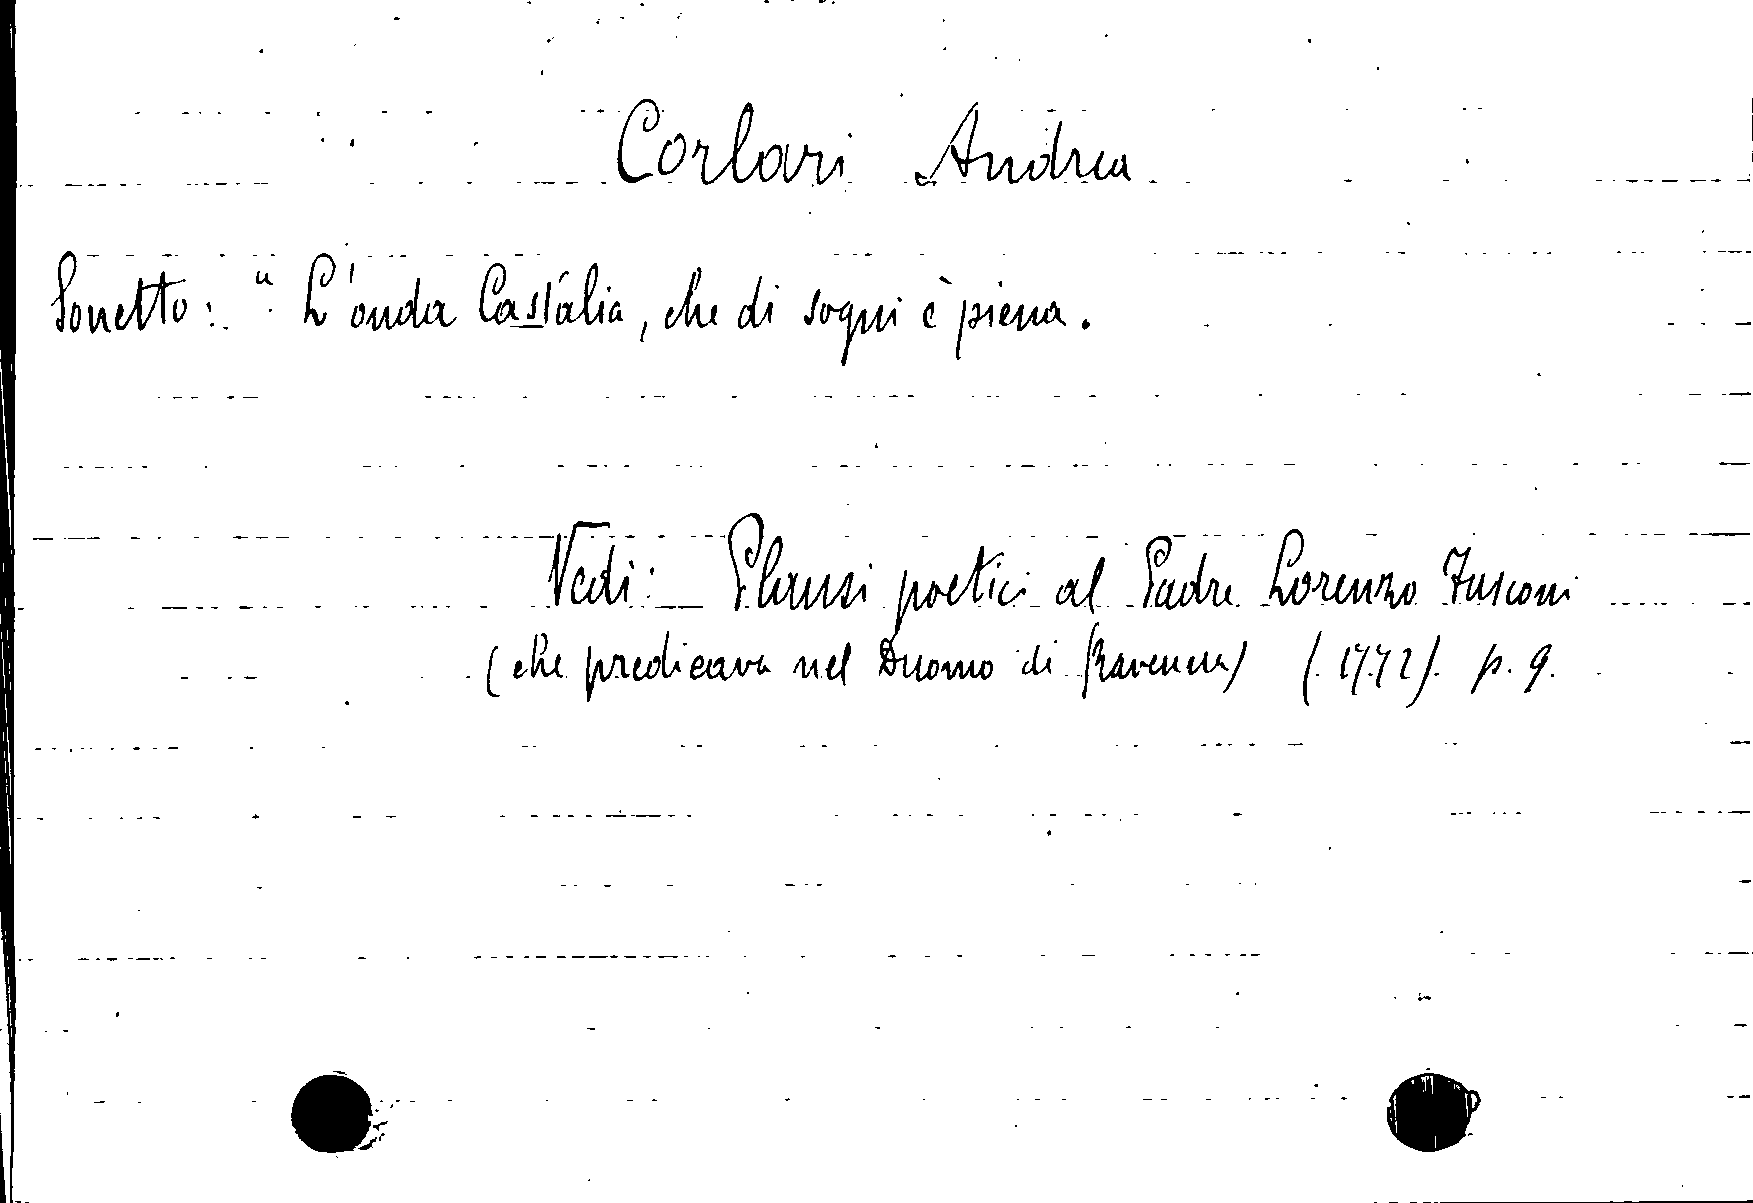 Corlari Andrea
Sonetto: " L'onda Castalia, che di sogni è piena.
Vedi: Plausi poetici al Padre Lorenzo Fusconi
(che predicava nel Duomo di Ravenna) (1772). p. 9.